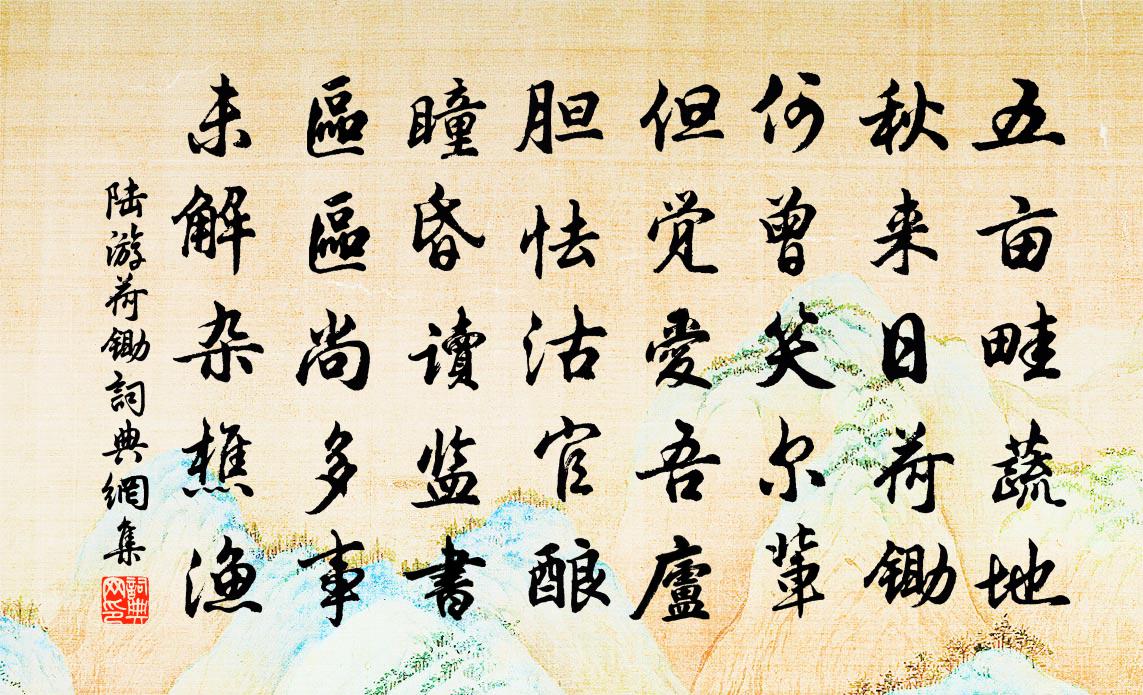 五亩畦蔬地
秋来日荷锄
何曾笑尔辈
但觉爱吾廬
胆怯沽官酿
瞳昏读监書
區區尚多事
未解杂樵渔
陆游荷锄詞典網集
詞典网印